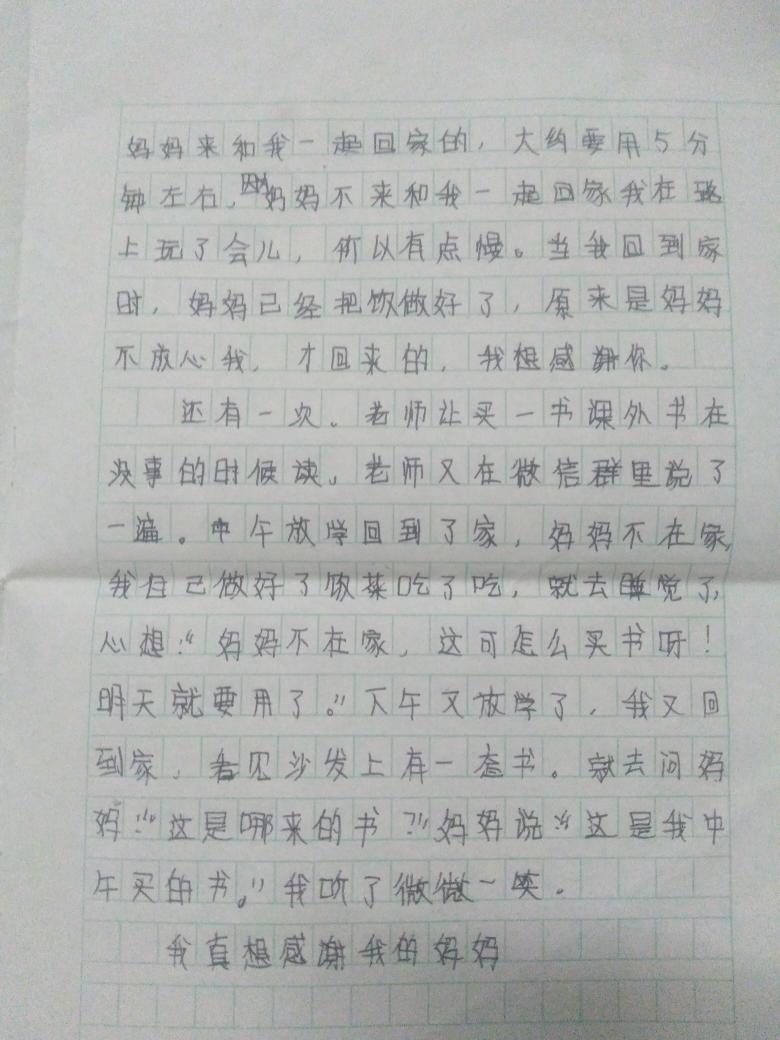 妈妈来和我一起回家的，大约要用5分
钟左右，因为妈妈不来和我一起回家我在路
上玩了会儿，所以有点慢。当我回到家
时，妈妈已经把饭做好了，原来是妈妈
不放心我，才回来的，我想感谢你。
还有一次。老师让买一书课外书在
没事的时候读。老师又在微信群里说了
一遍。中午放学回到了家，妈妈不在家，
我自己做好了饭菜吃了吃，就去睡觉了，
心想：“妈妈不在家，这可怎么买书呀！
明天就要用了。”下午又放学了，我又回
到家，看见沙发上有一套书。就去问妈
妈：“这是哪来的书？”妈妈说：“这是我中
午买的书。”我听了微微一笑。
我真想感谢我的妈妈